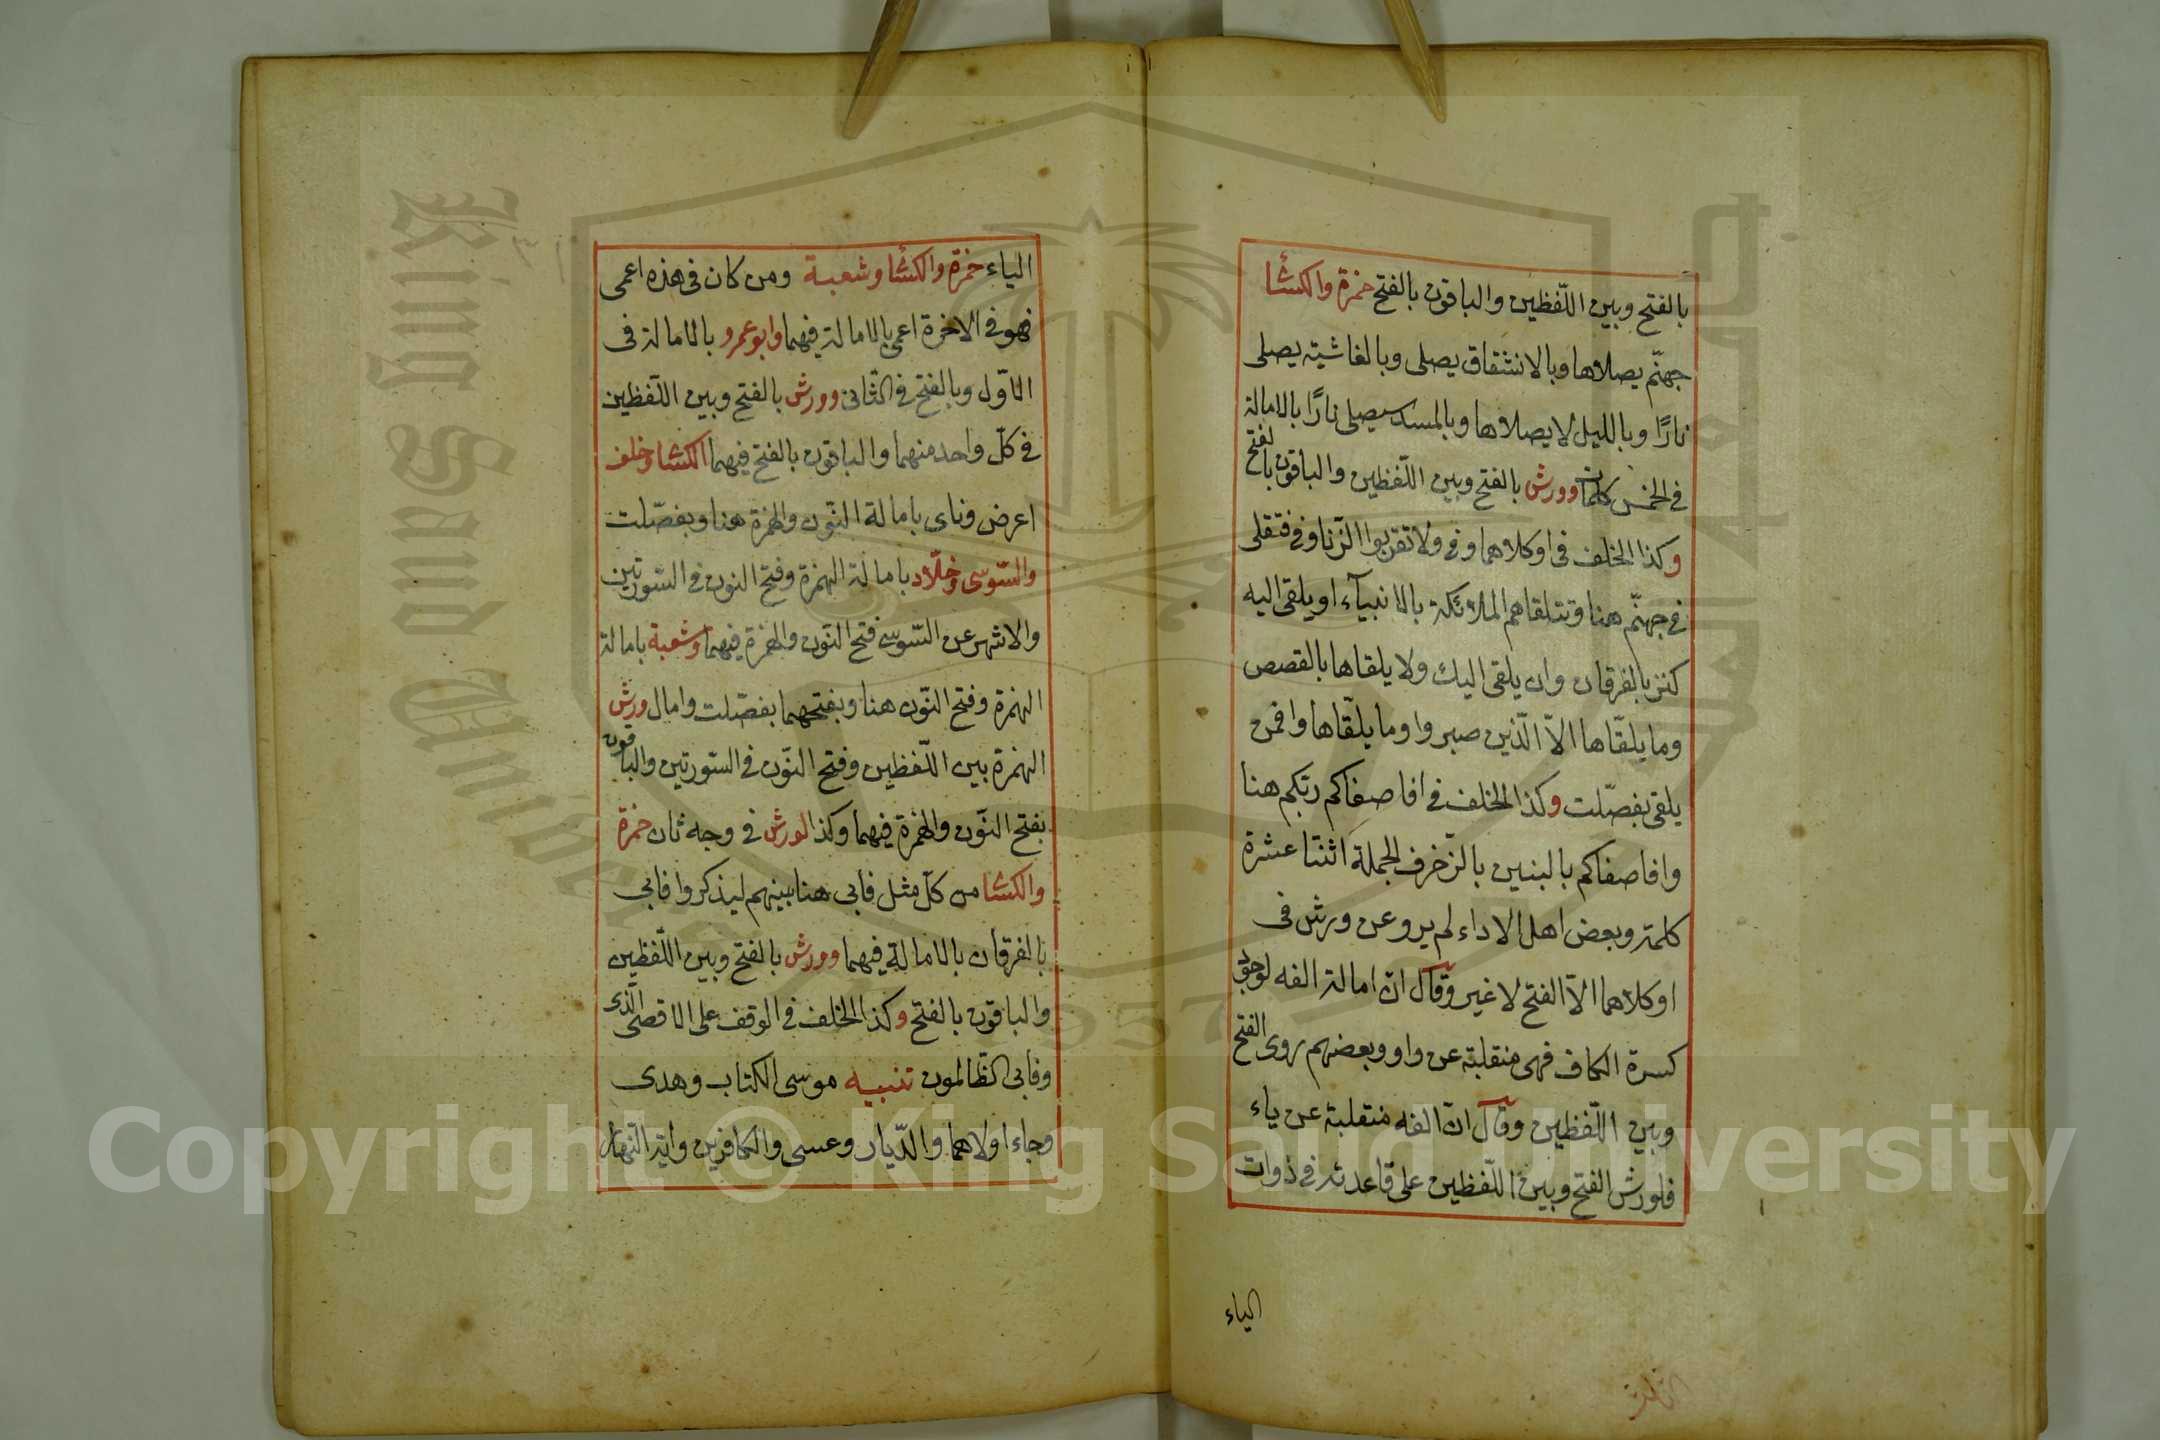 بالفتح وبين اللّفظين والباقون بالفتح حمزة والكسّا
جهنّم يصلاها وبالانشقاق يصلى وبالغاشية يصلى
نارًا وبالليل لا يصلاها وبالمسد سيصلى نارًا بالامالة
فى الخمس كلمات وورش بالفتح وبين اللّفظين والباقون بالفتح
وكذا الخلف فى اوكلاهما وفى ولا تقربوا الزّنا وفى فتلقى
فى جهنّم هنا وتتلقاهم الملائكة بالانبيآء او يلقى اليه
كنز بالفرقان وان يلقى اليك ولا يلقاها بالقصص
وما يلقّاها الاّ الّذين صبروا وما يلقّاها وافمن
يلقى بفصّلت وكذا الخلف فى افاصفاكم ربّكم هنا
وافاصفاكم بالبنين بالزّخرف الجملة اثنتا عشرة
كلمة وبعض اهل الاداء لم يرو عن ورش فى
اوكلاهما الاّ الفتح لا غير وقال انّ امالة الفه لوجود
كسرة الكاف فهى منقلبة عن واو وبعضهم روى الفتح
وبين اللّفظين وقال انّ الفه منقلبة عن ياء
فلورش الفتح وبين اللّفظين على قاعدته فى ذوات
الياء
الياء حمزة والكسّا وشعبة ومن كان فى هذه اعمى
فهو فى الاخرة اعمى بالامالة فيهما وابو عمرو بالامالة فى
الاوّل وبالفتح فى الثّانى وورش بالفتح وبين اللّفظين
فى كلّ واحد منهما والباقون بالفتح فيهما الكسّا وخلف
اعرض وناى بامالة النّون والهمزة هنا وبفصّلت
والسّوسى وخلّاد بامالة الهمزة وفتح النون فى السّورتين
والاشهر عن السّوسى فتح النّون والهمزة فيهما وشعبة بامالة
الهمزة وفتح النّون هنا وبفتحهما بفصّلت وامال ورش
الهمزة بين اللّفظين وفتح النّون فى السّورتين والباقون
بفتح النّون والهمزة فيهما وكذا لورش فى وجه ثان حمزة
والكسّا من كلّ مثل فابى هنا بينهم ليذكروا فابى
بالفرقان بالامالة فيهما وورش بالفتح وبين اللّفظين
والباقون بالفتح وكذا الخلف فى الوقف على الاقصى الّذى
وفابى الظّالمون تنبيه موسى الكتاب وهدى
وجاء اولاهما والدّيار وعسى والكافرين واية النّهار
King Saud University
1957
Copyright © King Saud University